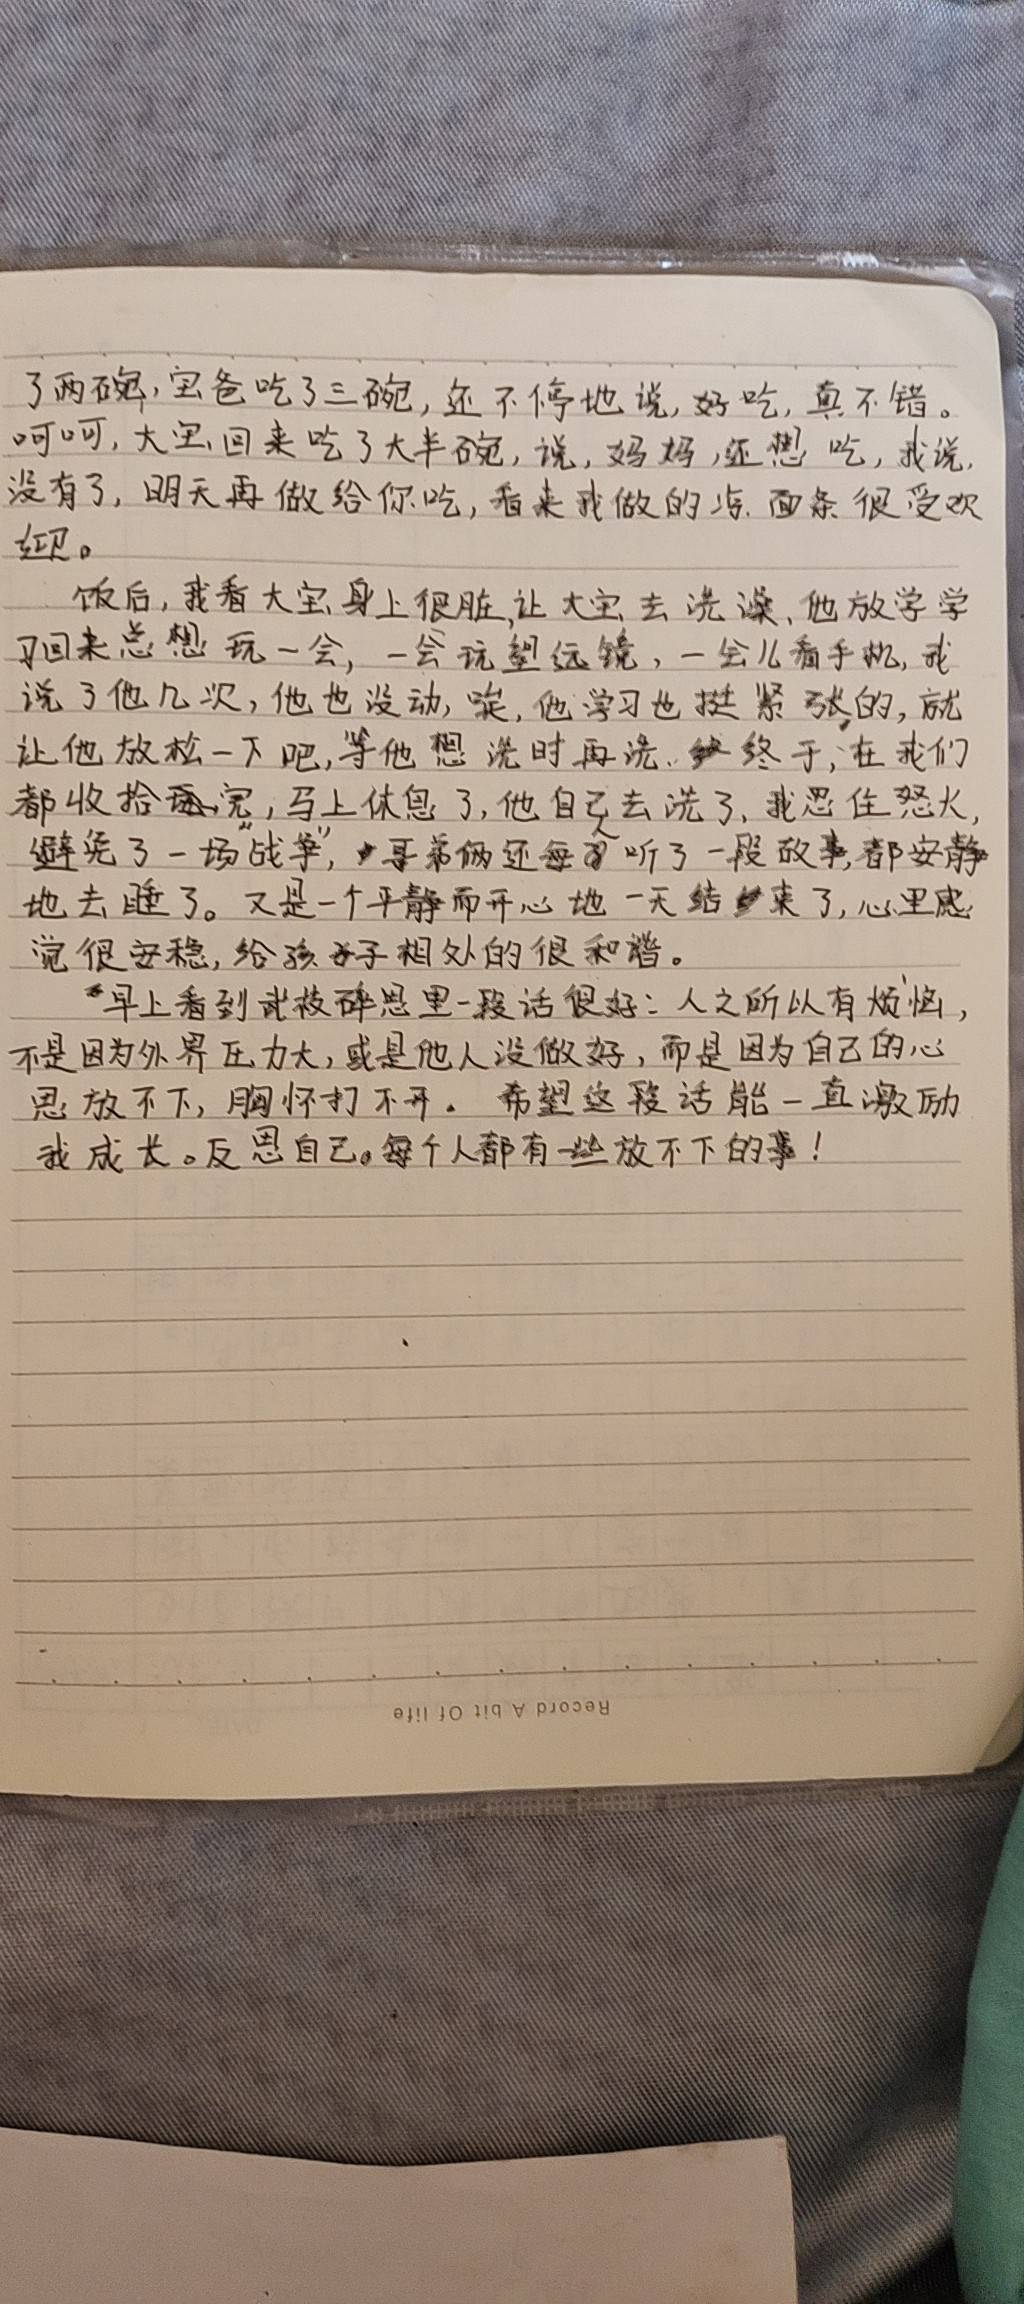 了两碗，宝爸吃了三碗，还不停地说，好吃，真不错。
呵呵，大宝回来吃了大半碗，说，妈妈，还想吃，我说，
没有了，明天再做给你吃，看来我做的 面条很受欢
迎。
饭后，我看大宝身上很脏，让大宝去洗澡、他放学学
习回来总想玩一会，一会玩望远镜，一会儿看手机，我
说了他几次，他也没动，唉，他学习也挺紧张的，就
让他放松一下吧，等他想洗时再洗、终于，在我们
都收拾完，马上休息了，他自己去洗了、我忍住怒火，
避免了一场“战争”，哥弟俩还每人听了一段故事，都安静
地去睡了。又是一个平静而开心地一天结束了，心里感
觉很安稳，给孩子相处的很和谐。
早上看到武校碎思里一段话很好：人之所以有烦恼，
不是因为外界压力大，或是他人没做好，而是因为自己的心
思放不下，胸怀打不开。希望这段话能一直激励
我成长。反思自己。每个人都有一些放不下的事！
Record A bit Of life